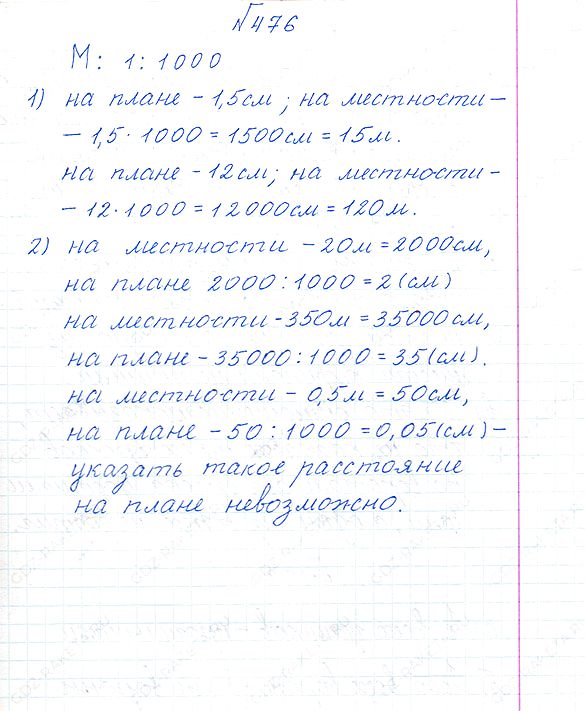 №476
М: 1:1000
1) на плане – 1,5см; на местности –
– 1,5·1000 = 1500см = 15м.
на плане – 12см; на местности –
– 12·1000 = 12000см = 120м.
2) на местности – 20м = 2000см,
на плане 2000:1000 = 2(см)
на местности – 350м = 35000см,
на плане – 35000:1000 = 35(см).
на местности – 0,5м = 50см,
на плане – 50:1000 = 0,05(см) –
указать такое расстояние
на плане невозможно.